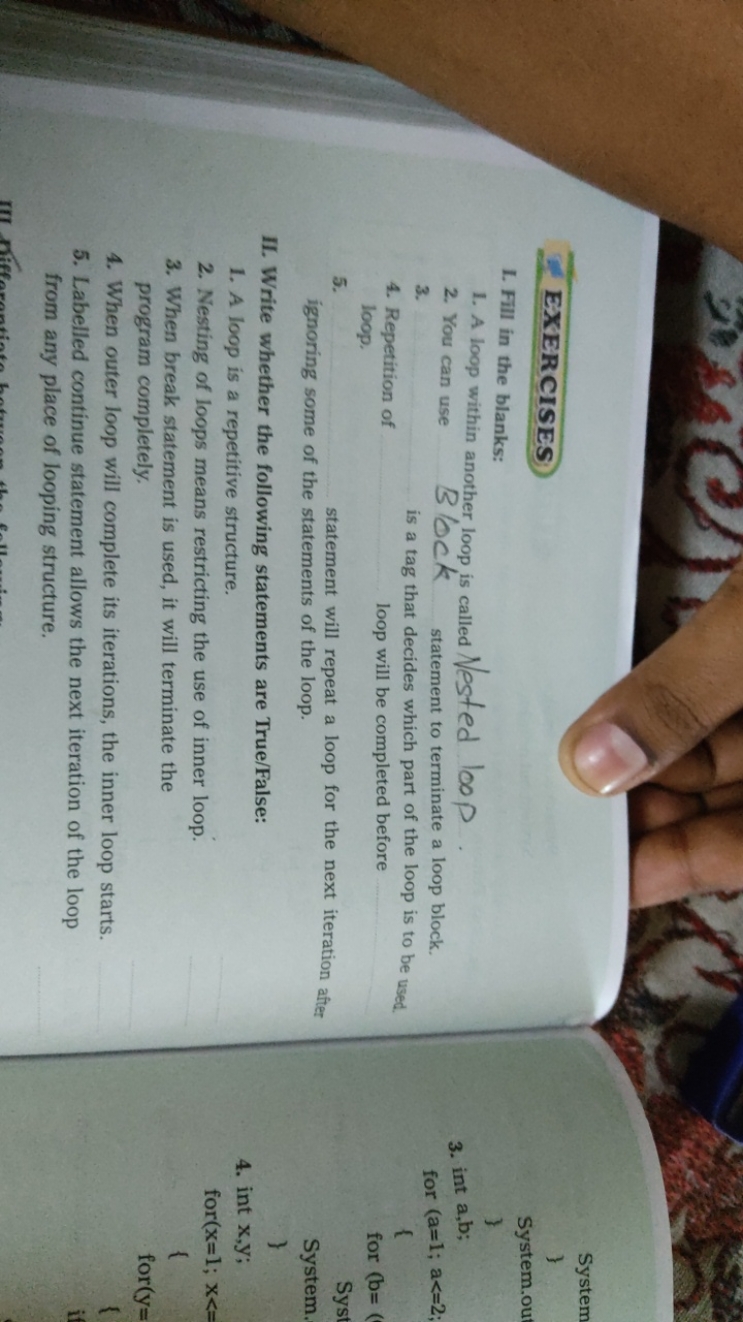 EXERCISES
I. Fill in the blanks:
1. A loop within another loop is called Nested loop.
2. You can use Block statement to terminate a loop block.
3. is a tag that decides which part of the loop is to be used.
4. Repetition of loop will be completed before
loop.
5. statement will repeat a loop for the next iteration after
ignoring some of the statements of the loop.
II. Write whether the following statements are True/False:
1. A loop is a repetitive structure.
2. Nesting of loops means restricting the use of inner loop.
3. When break statement is used, it will terminate the
program completely.
4. When outer loop will complete its iterations, the inner loop starts.
5. Labelled continue statement allows the next iteration of the loop
from any place of looping structure.
III. Differentiate between the following:
System
}
System.out
}
3. int a,b;
for (a=1; a<=2;
{
for (b=
Syst
System.
}
4. int x,y;
for(x=1; x<=
{
for(y=
{
if